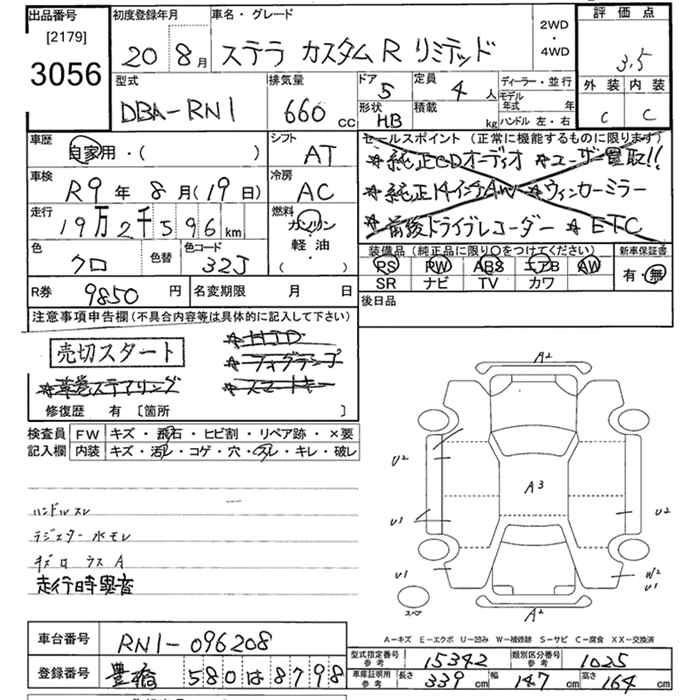 出品番号 初度登録年月 車名・グレード 2WD・4WD 評価点
[2179]
3056
20 8月 ステラ カスタムR リミテッド 3.5
型式 排気量 ドア 5 定員 4人 ディーラー・並行 外装 内装
モデル年式 年
DBA-RN1 660cc 形状 HB 積載 kg ハンドル 左・右 C C
車歴 シフト セールスポイント(正常に機能するものに限ります)
自家用・( ) AT ★純正CDオーディオ ★ユーザー買取!!
車検 冷房
R9年8月(19日) AC ★純正14インチAW ★ウィンカーミラー
走行 燃料
19万2千596km ガソリン・軽油・( ) ★前後ドライブレコーダー ★ETC
色 色替 色コード 装備品(純正品に限り○をつけてください) 新車保証書
クロ 32J RS PW ABS エアB AW 有・無
SR ナビ TV カワ
R券 9850円 名変期限 月 日 後日品
注意事項申告欄(不具合内容等は具体的に記入して下さい)
★HID
売切スタート ★フォグランプ
★革巻ステアリング ★スマートキー
修復歴 有 [箇所 ]
検査員 FW キズ・飛石・ヒビ割・リペア跡・×要
記入欄 内装 キズ・汚レ・コゲ・穴・スレ・キレ・破レ
A2
U2
A3
U1 U2
U1 W2
U1
スペア A2
ハンドルスレ
ラジエター水モレ
走行時異音
A-キズ E-エクボ U-凹み W-補修跡 S-サビ C-腐食 XX-交換済
車台番号 RN1-096208
型式指定番号 参考 15342 類別区分番号 参考 1025
登録番号 豊橋 580は8798
車庫証明用 参考 長さ 339cm 幅 147cm 高さ 164cm